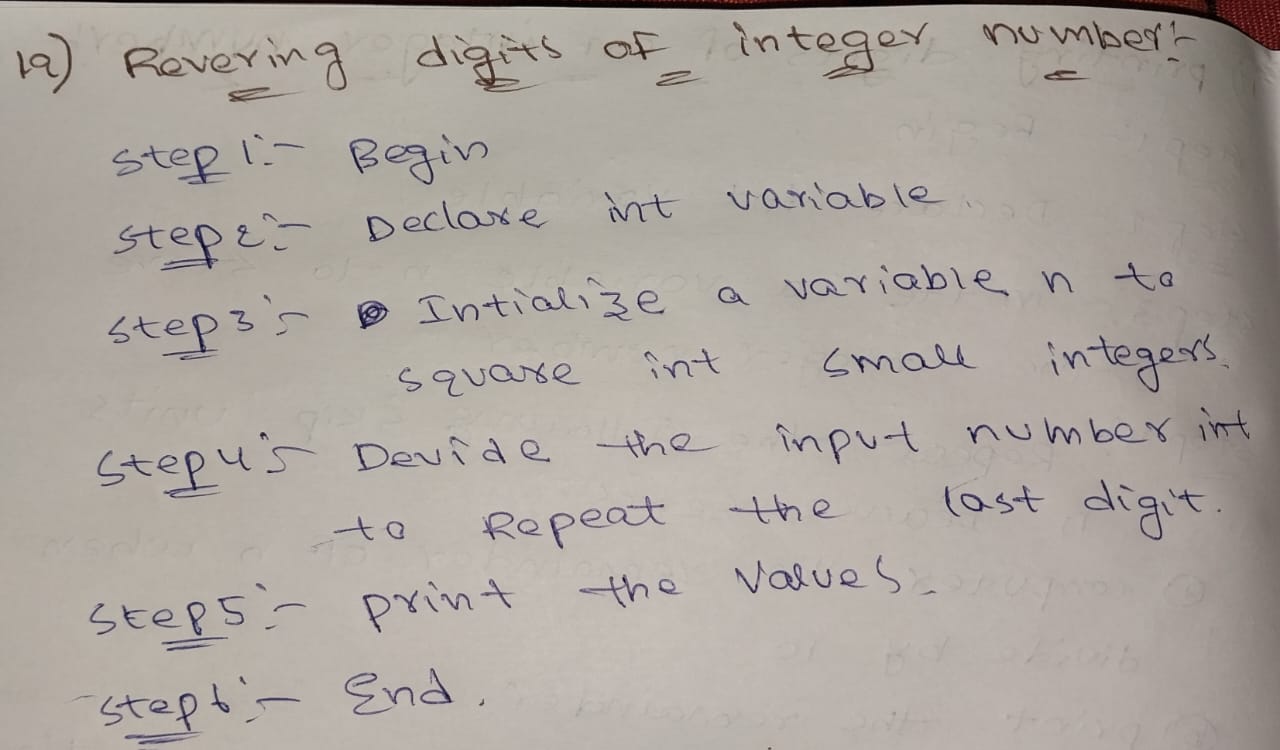 19) Revering digits of integer number:-
step 1:- Begin
step2:- Declare int variable.
step3:- Intialize a variable n to
square int small integers.
step4:- Devide the input number int
to Repeat the last digit.
step5:- print the values.
step6:- End.